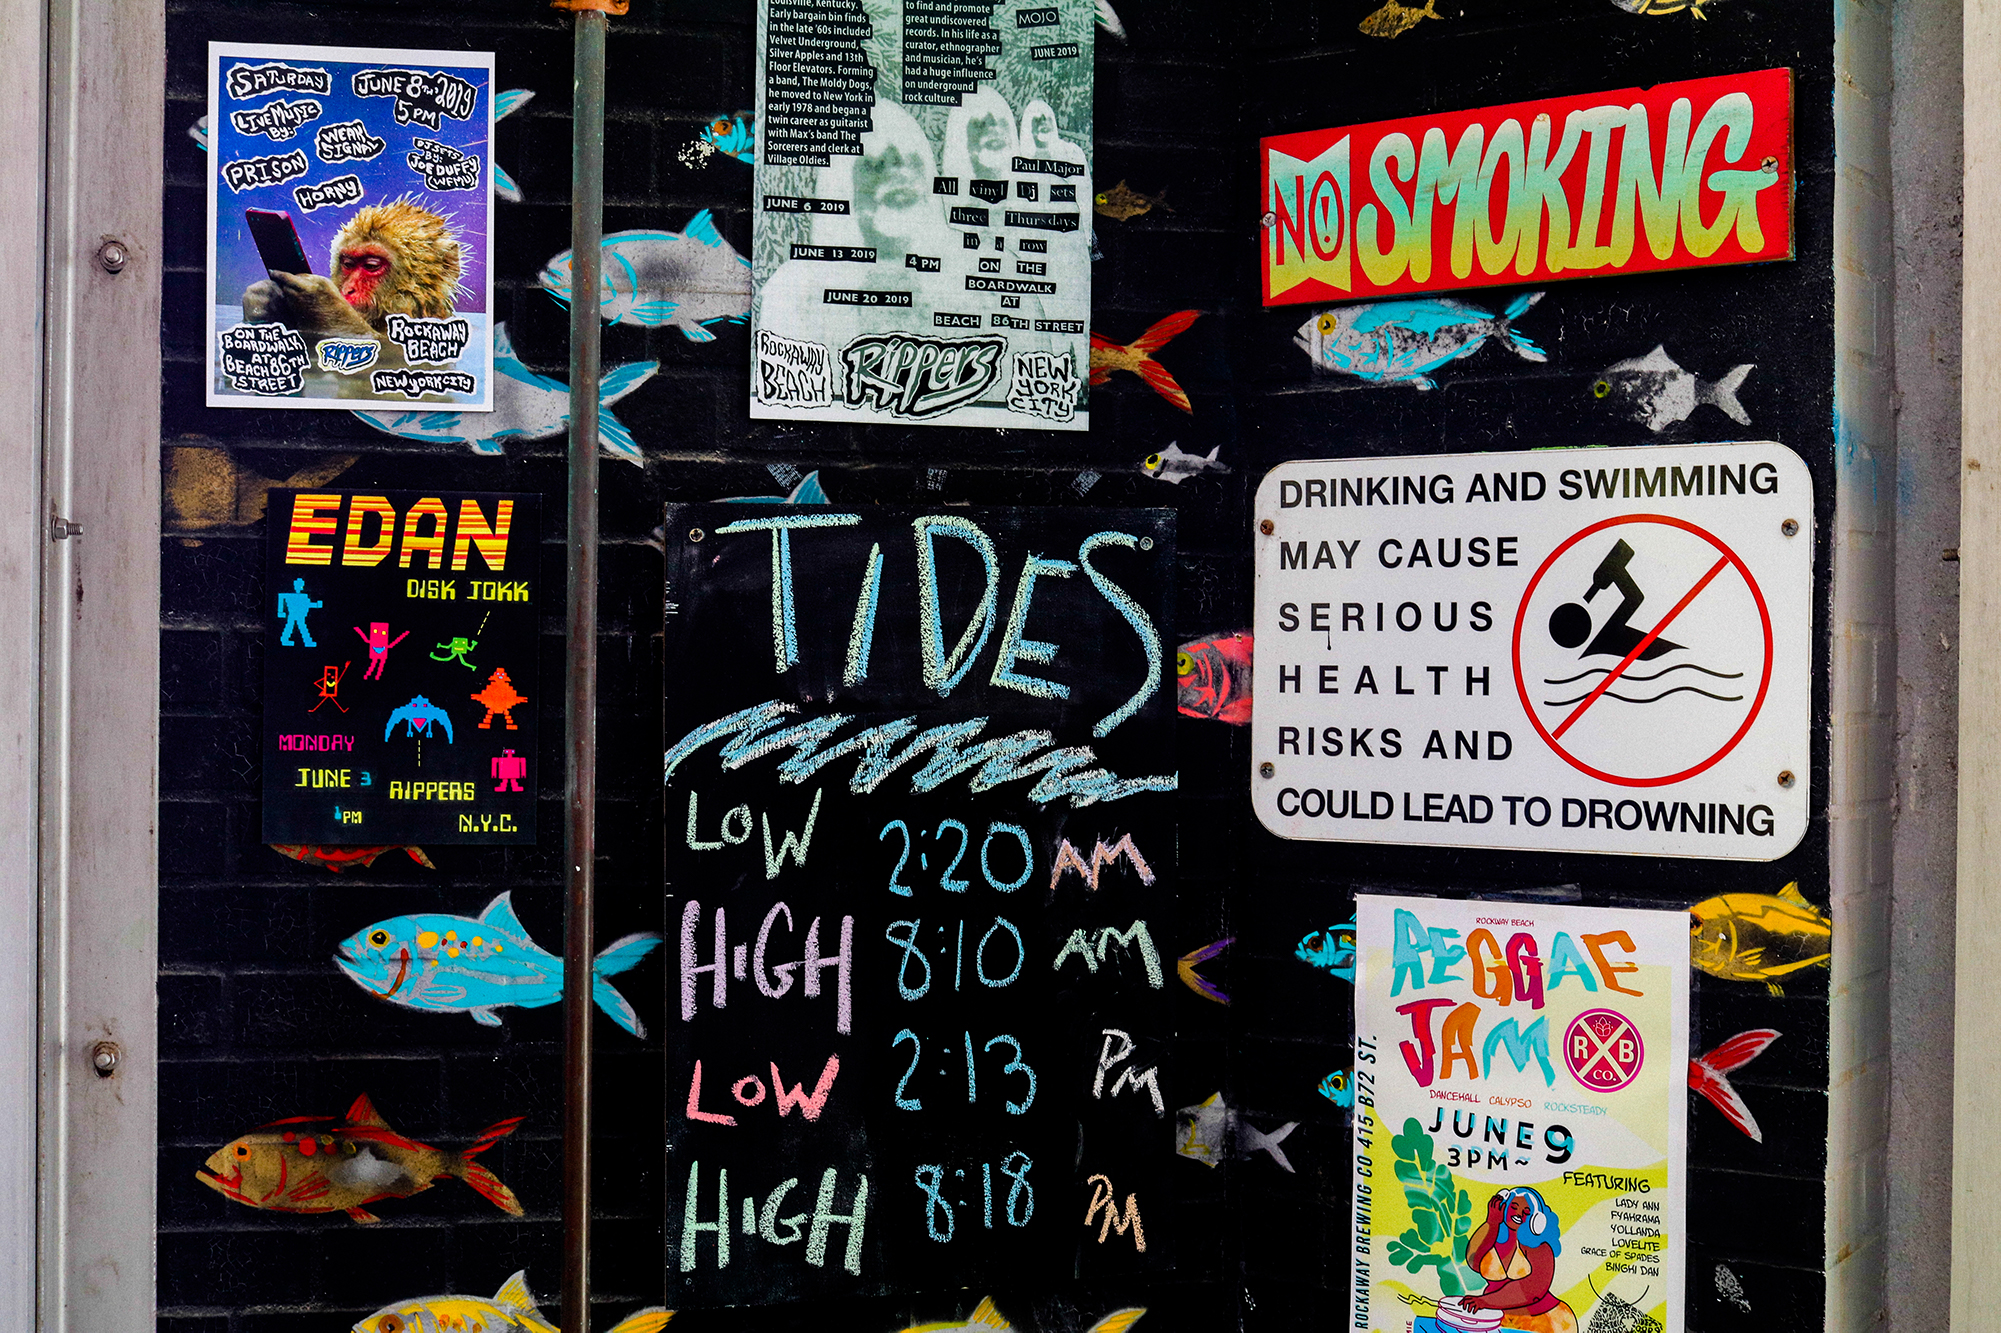 SATURDAY
JUNE 8TH, 2019
5 PM
LIVE MUSIC
BY:
WEAK
SIGNAL
PRISON
HORNY
DJ SETS
BY:
JOE DUFFY
(WFMU)
ON THE
BOARDWALK
AT
BEACH 86TH
STREET
RIPPERS
ROCKAWAY
BEACH
NEW YORK CITY
Louisville, Kentucky.
Early bargain bin finds
in the late '60s included
Velvet Underground,
Silver Apples and 13th
Floor Elevators. Forming
a band, The Moldy Dogs,
he moved to New York in
early 1978 and began a
twin career as guitarist
with Max's band The
Sorcerers and clerk at
Village Oldies.
to find and promote
great undiscovered
records. In his life as a
curator, ethnographer
and musician, he's
had a huge influence
on underground
rock culture.
MOJO
JUNE 2019
Paul Major
All vinyl Dj sets
three Thursdays
in a row
ON THE
BOARDWALK
AT
BEACH 86TH STREET
JUNE 6 2019
JUNE 13 2019
4 PM
JUNE 20 2019
ROCKAWAY
BEACH
RIPPERS
NEW
YORK
CITY
NO SMOKING
EDAN
DISK JOKK
MONDAY
JUNE 3
1PM
RIPPERS
N.Y.C.
TIDES
LOW 2:20 AM
HIGH 8:10 AM
LOW 2:13 PM
HIGH 8:18 PM
DRINKING AND SWIMMING
MAY CAUSE
SERIOUS
HEALTH
RISKS AND
COULD LEAD TO DROWNING
ROCKWAY BEACH
REGGAE
JAM
R B
CO.
DANCEHALL CALYPSO ROCKSTEADY
JUNE 9
3PM~
FEATURING
LADY ANN
FYAHRAMA
YOLLANDA
LOVELITE
GRACE OF SPADES
BINGHI DAN
ROCKAWAY BREWING CO 415 B72 ST.